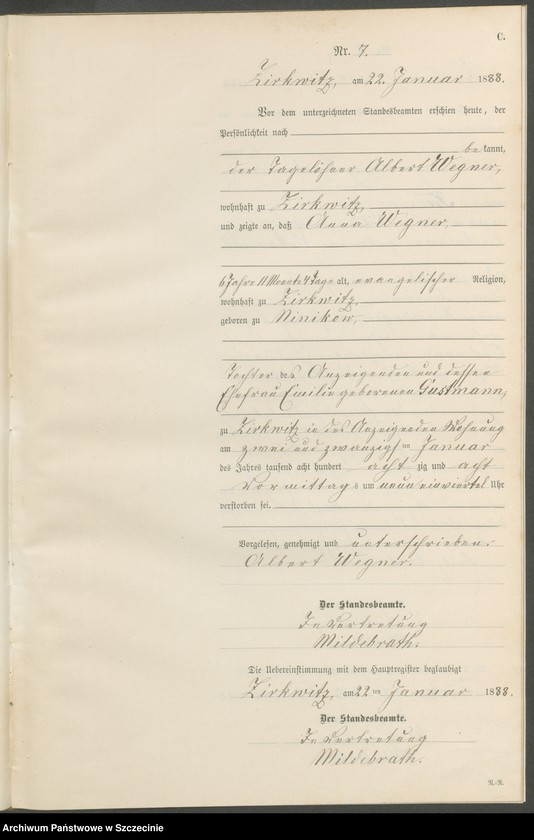 C.
Nr. 7.
Zirkwitz, am 22. Januar 1888.
Vor dem unterzeichneten Standesbeamten erschien heute, der
Persönlichkeit nach
be kannt,
der Tagelöhner Albert Wegner,
wohnhaft zu Zirkwitz,
und zeigte an, daß Anna Wegner,
6 Jahre 11 Monate 4 Tage alt, evangelischer Religion,
wohnhaft zu Zirkwitz,
geboren zu Ninikow,
Tochter des Anzeigenden und dessen
Ehefrau Emilie geborenen Gustmann,
zu Zirkwitz in des Anzeigenden Wohnung
am zwei und zwanzigsten Januar
des Jahres tausend acht hundert acht zig und acht
Vormittags um neun einviertel Uhr
verstorben sei.
Vorgelesen, genehmigt und unterschrieben.
Albert Wegner.
Der Standesbeamte.
In Vertretung
Mildebrath.
Die Uebereinstimmung mit dem Hauptregister beglaubigt
Zirkwitz, am 22 ten Januar 1888.
Der Standesbeamte.
In Vertretung
Mildebrath.
N.-R.
Archiwum Państwowe w Szczecinie